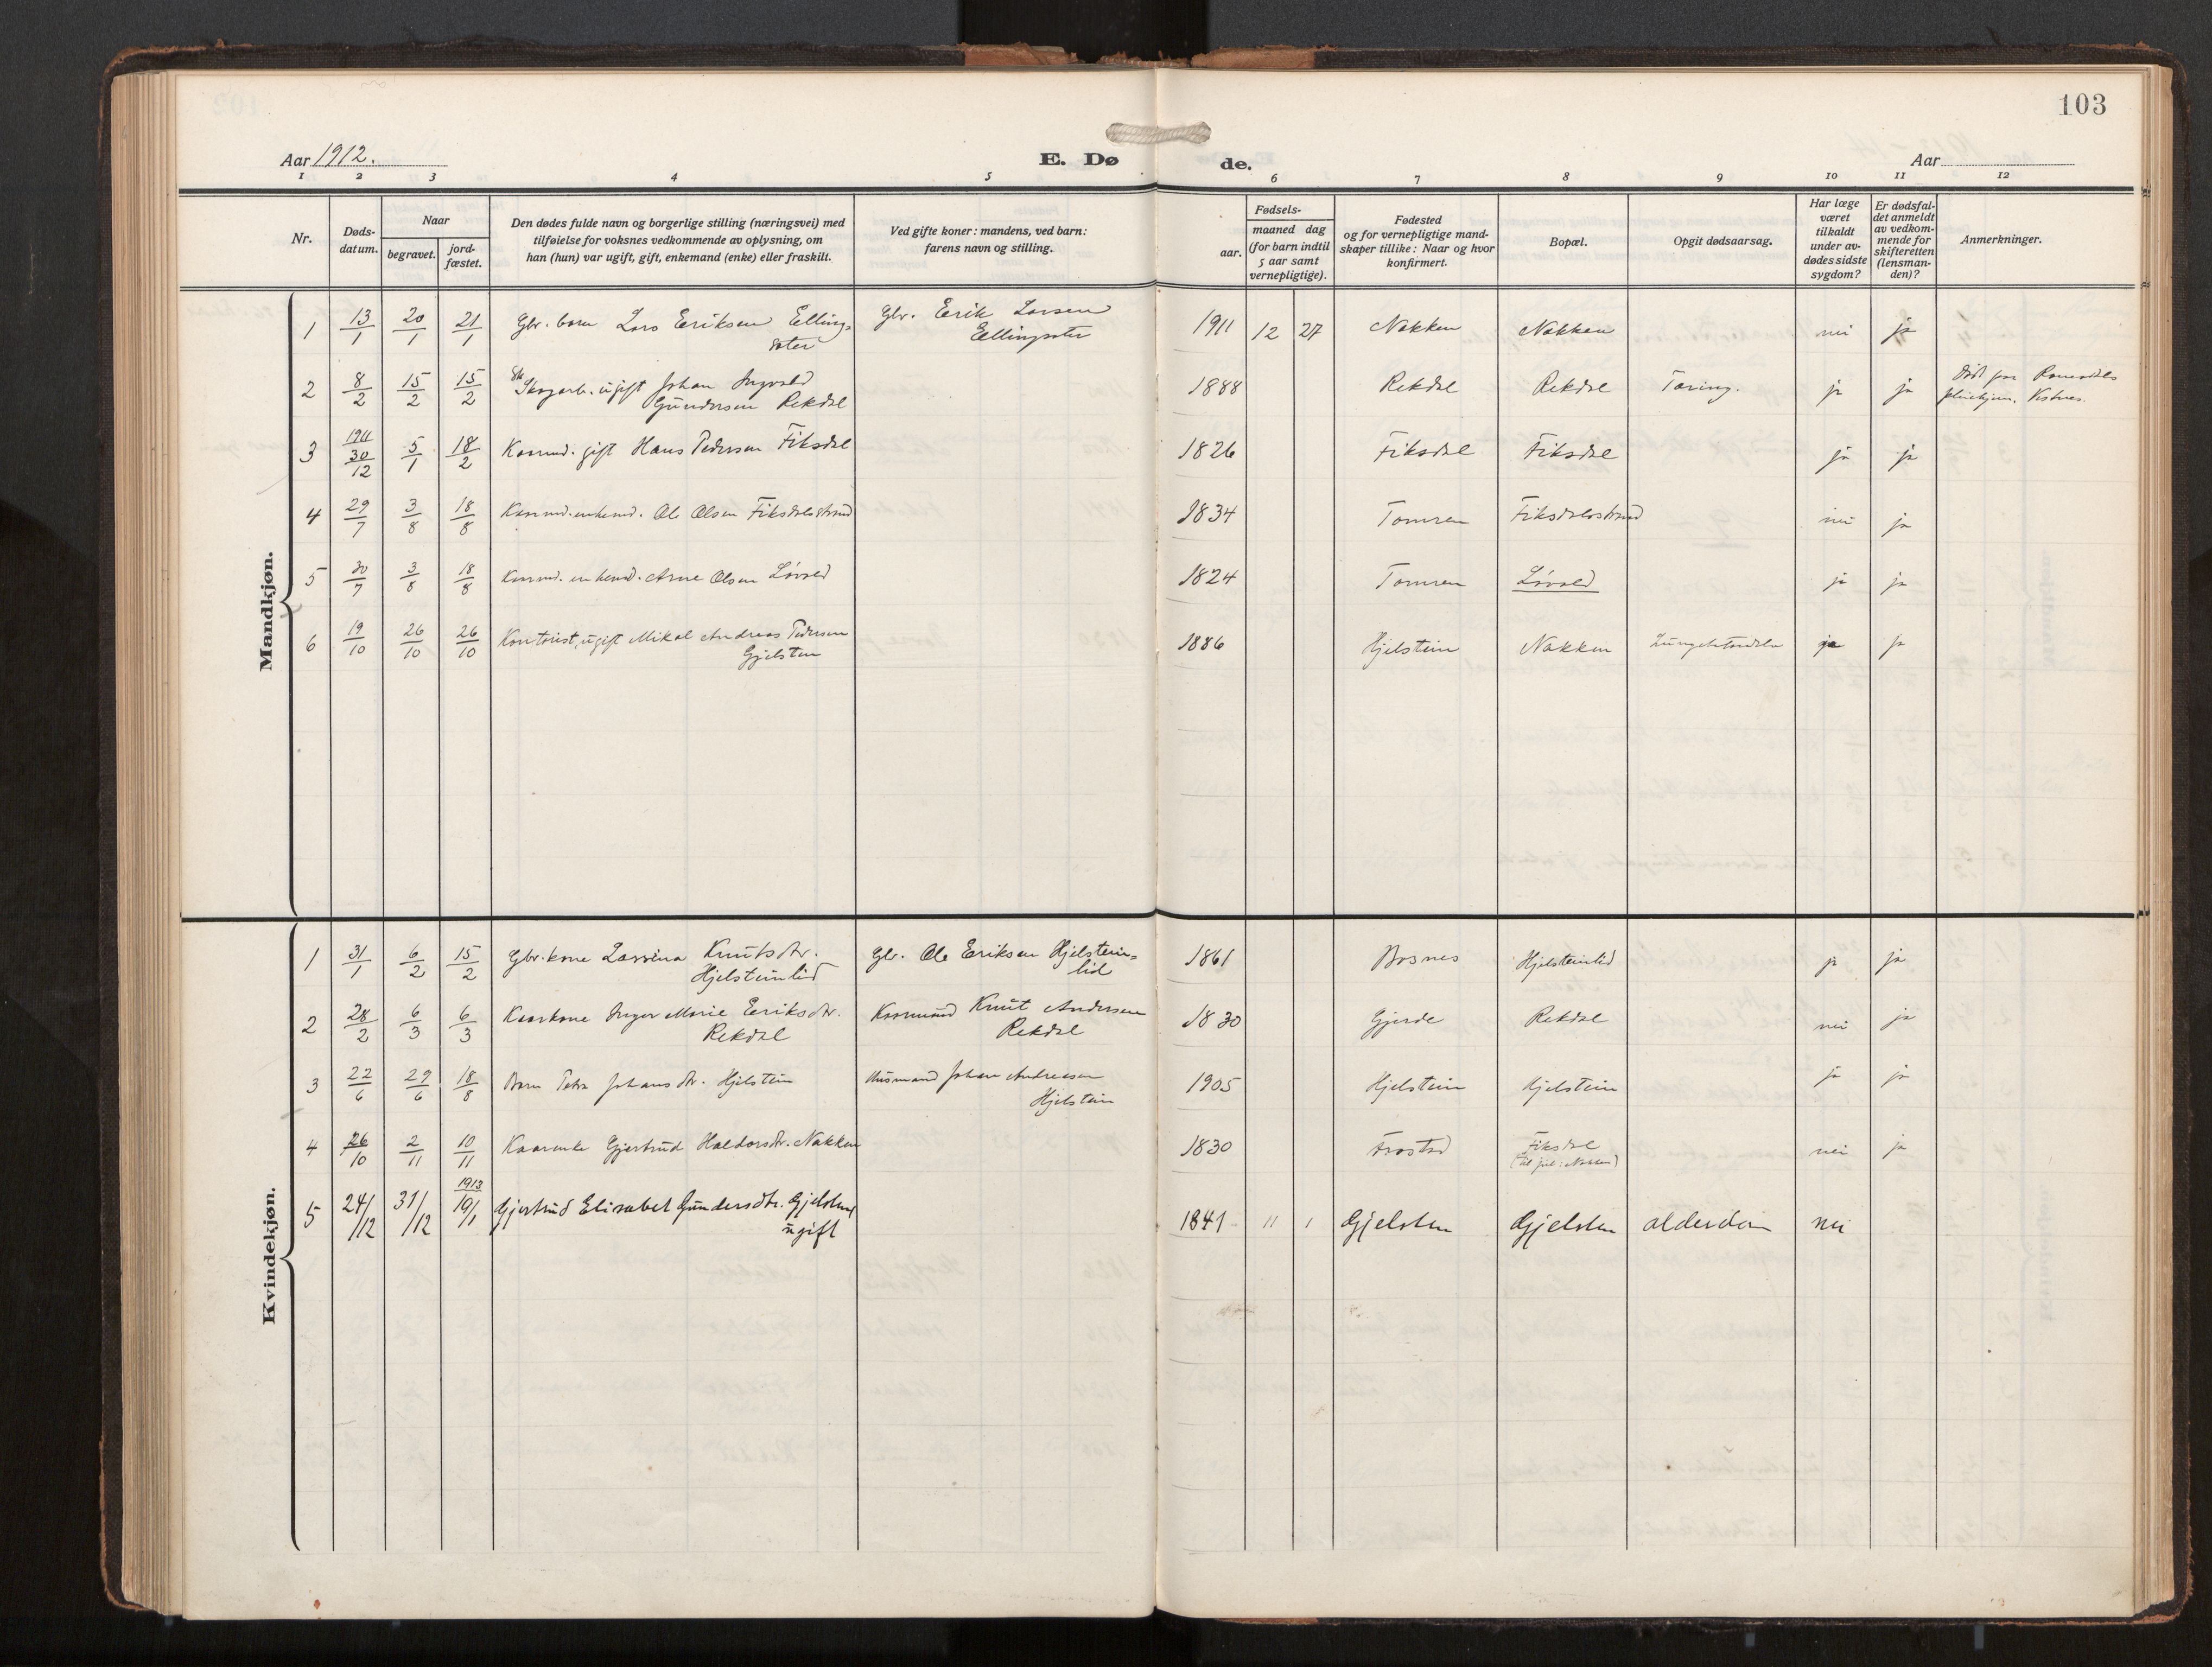 103
Aar 1912.
E. Døde.
Aar
1 2 3 4 5 6 7 8 9 10 11 12
Nr.
Dødsdatum.
Naar
begravet.
jordfæstet.
Den dødes fulde navn og borgerlige stilling (næringsvei) med
tilføielse for voksnes vedkommende av oplysning, om
han (hun) var ugift, gift, enkemand (enke) eller fraskilt.
Ved gifte koner: mandens, ved barn:
farens navn og stilling.
Fødsels-
aar.
maaned dag
(for barn indtil
5 aar samt
vernepligtige).
Fødested
og for vernepligtige mand-
skaper tillike: Naar og hvor
konfirmert.
Bopæl.
Opgit dødsaarsag.
Har læge
været
tilkaldt
under av-
dødes sidste
sygdom?
Er dødsfal-
det anmeldt
av vedkom-
mende for
skifteretten
(lensman-
den)?
Anmerkninger.
Mandkjøn.
1 13/1 20/1 21/1 Gbr. barn Lars Eriksen Ellings- Gbr. Erik Larsen 1911 12 27 Nakken Nakken nei ja
sæter Ellingsæter
2 8/2 15/2 15/2 Skogarb. ugift Johan Ingvald 1888 Rekdal Rekdal Tæring. ja ja Død paa Romsdals
Gundersen Rekdal pleiehjem. Vestnes.
3 1911 30/12 5/1 18/2 Kaarmd. gift Hans Pedersen Fiksdal 1826 Fiksdal Fiksdal ja ja
4 29/7 3/8 18/8 Kaarmd. enkemd. Ole Olsen Fiksdalsstrand 1834 Tomren Fiksdalsstrand nei ja
5 30/7 3/8 18/8 Kaarmd. enkemd. Arne Olsen Løvold 1824 Tomren Løvold ja ja
6 19/10 26/10 26/10 Kontorist, ugift Mikal Andreas Pedersen 1886 Hjelstein Nakken ja ja
Gjelsten
Kvindekjøn.
1 31/1 6/2 15/2 Gbr. kone Lassina Knutsdtr. Gbr. Ole Eriksen Hjelstein- 1861 Bosnes Hjelsteinlid ja ja
Hjelsteinlid lid
2 28/2 6/3 6/3 Kaarkone Inger Marie Eeriksdtr. Kaarmand Knut Andersen 1830 Gjerde Rekdal nei ja
Rekdal Rekdal
3 22/6 29/6 18/8 Barn Petra Johansdtr. Hjelstein Husmand Johan Andreasen 1905 Hjelstein Hjelstein ja ja
Hjelstein
4 26/10 2/11 10/11 Kaarenke Gjertrud Haldorsdtr. Nakken 1830 Frostad Fiksdal nei ja
5 24/12 31/12 1913 19/1 Gjertrud Elisabet Gundersdtr. Gjelsten 1841 11 1 Gjelsten Gjelsten alderdom nei
ugift